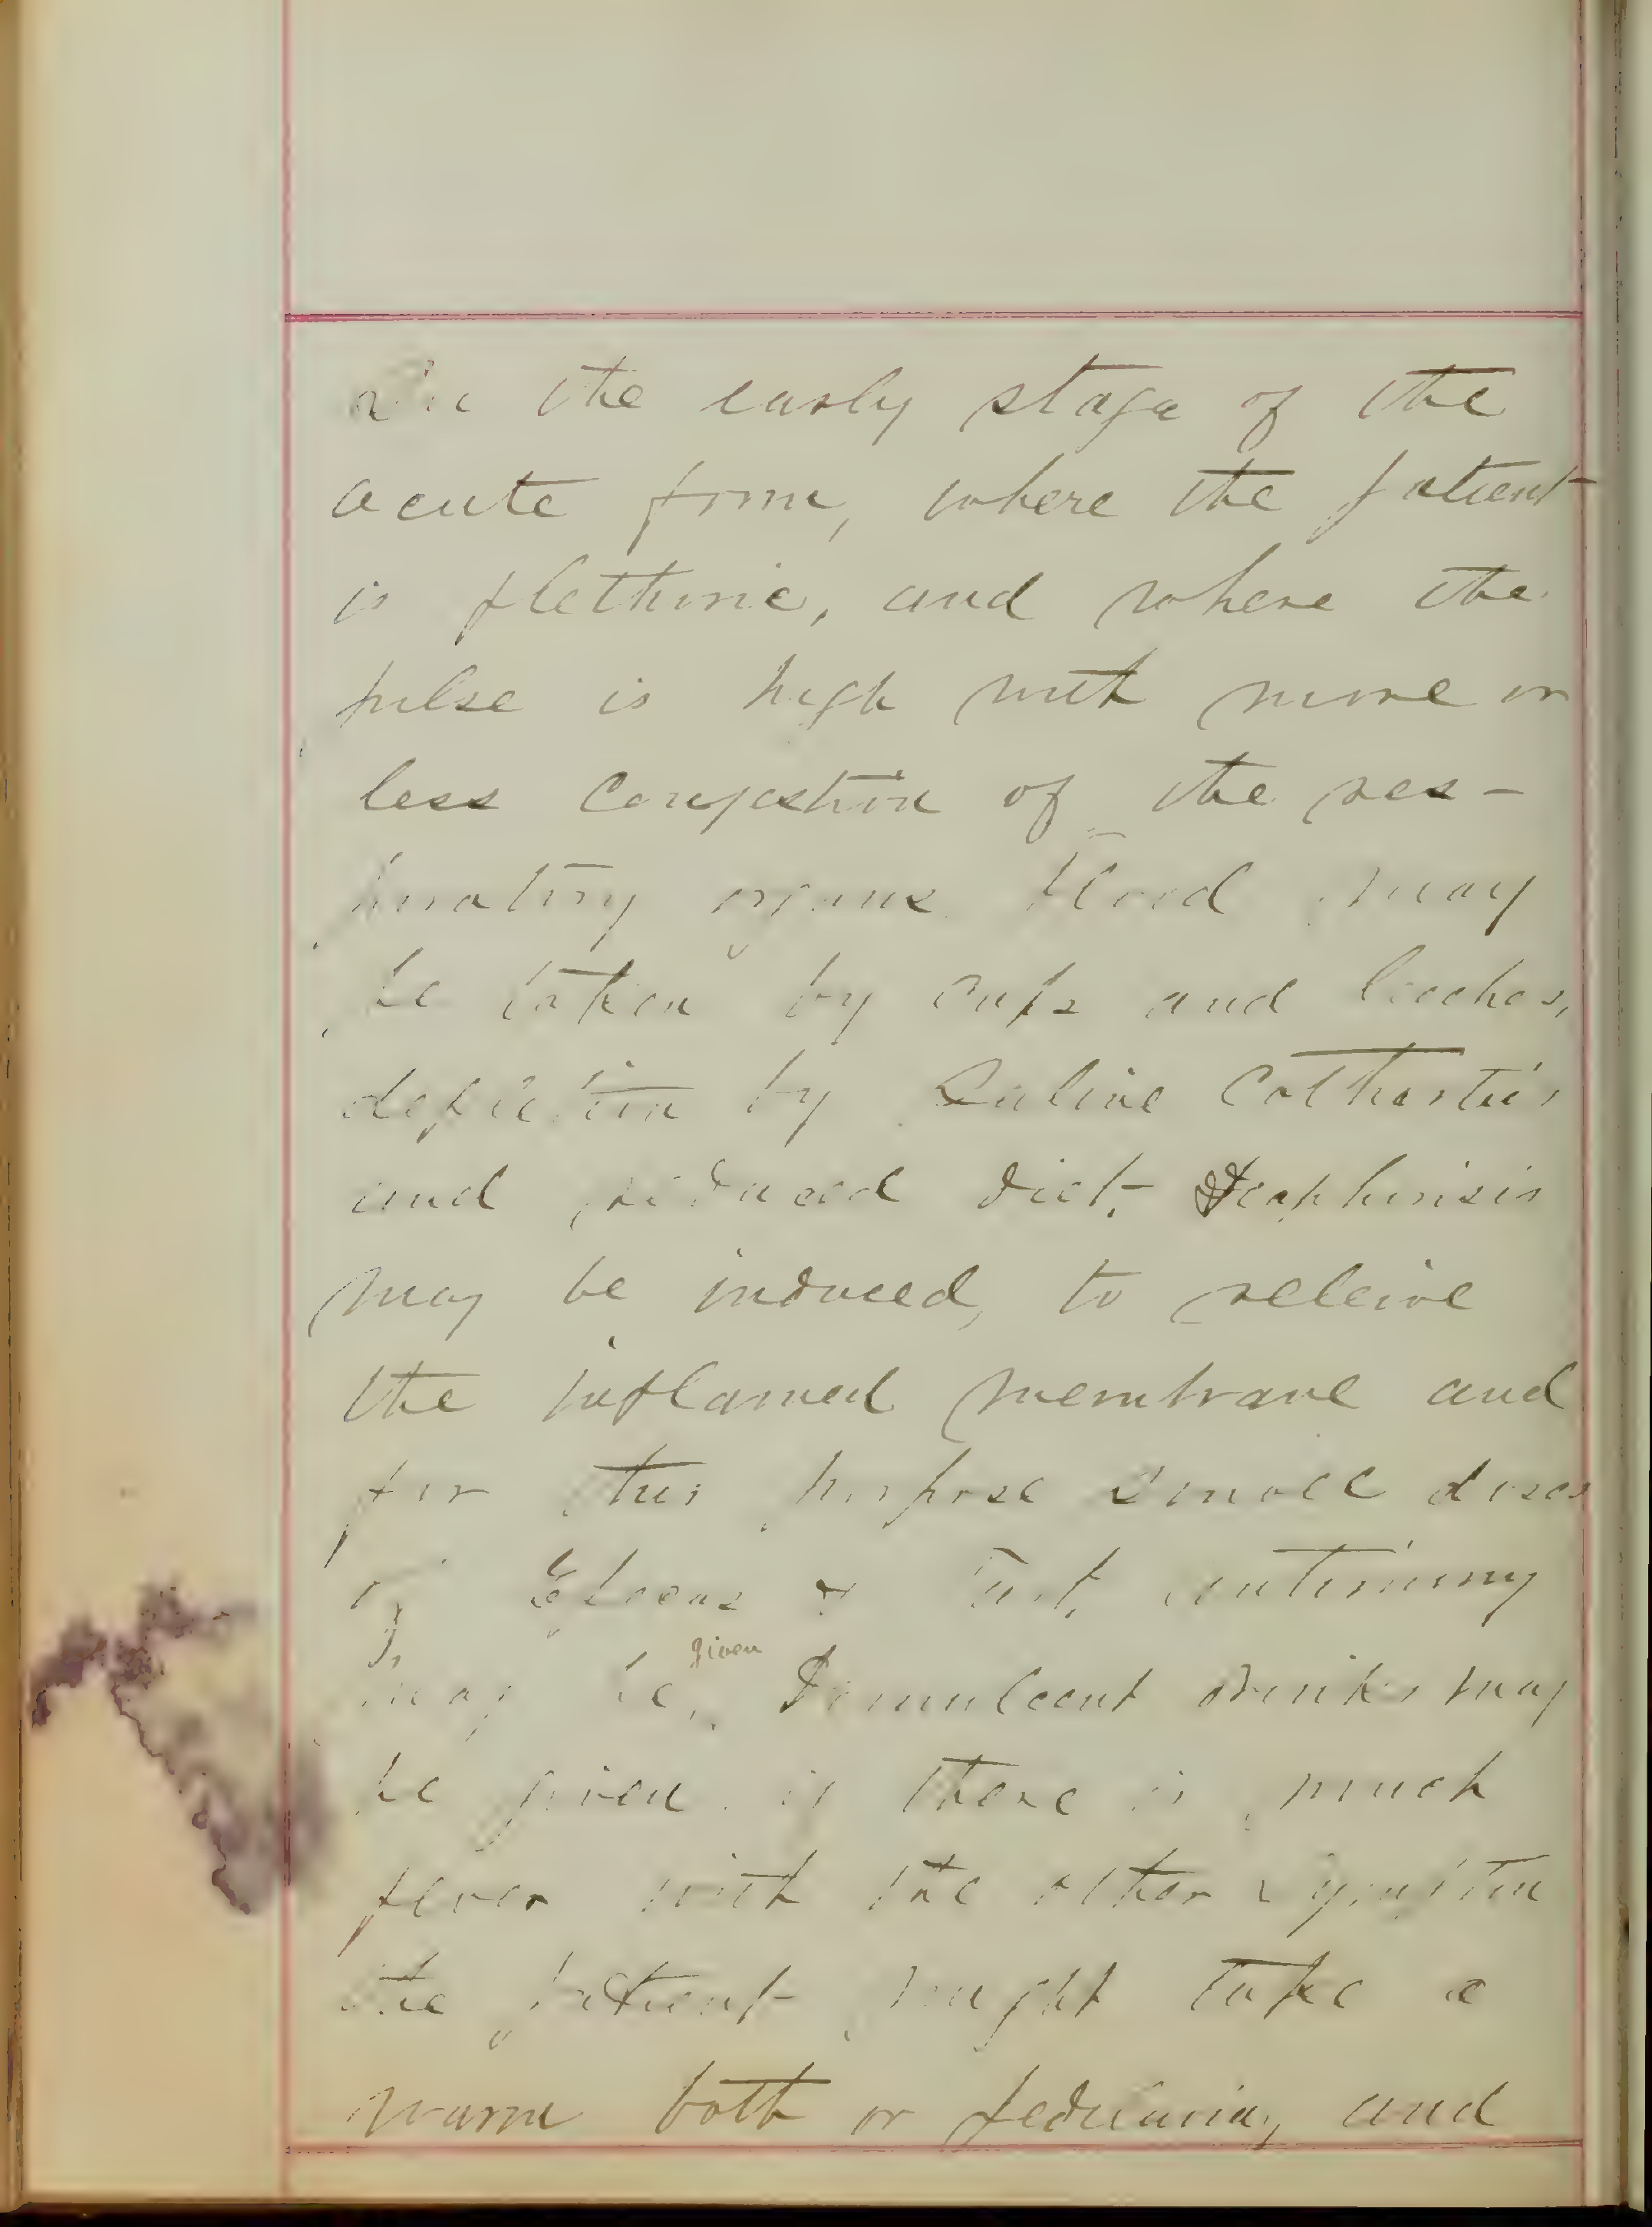 In the early stage of the
acute form, where the patient
is plethoric, and where the
pulse is high with more or
less congestion of the res-
piratory organs blood may
be taken by cups and leeches,
depletion by Saline Cathartics
and reduced diet, Diaphorisis
may be induced, to releive
the inflamed membrane and
for this purpose small doses
of Ipecac & Tart. antimony
may be given, Demulcent drinks may
be given if there is much
fever with the other symptom
the patient might take a
warm bath or pediluvia, and